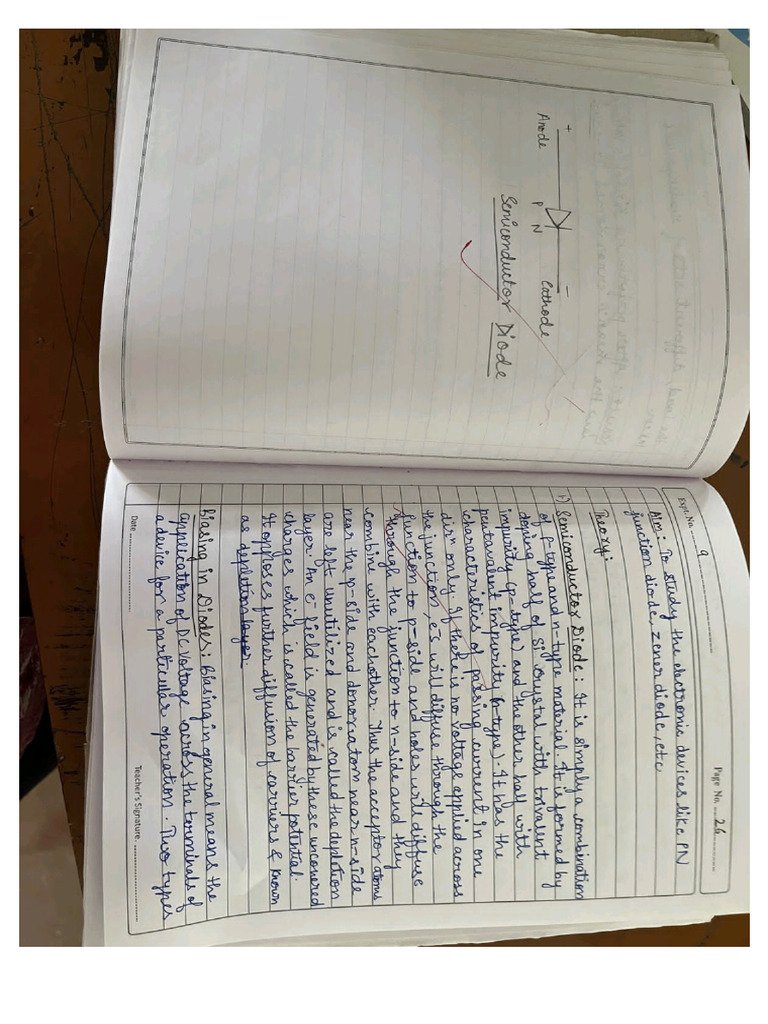 + –
Anode P N Cathode
Semiconductor Diode
Expt. No. 9
Page No. 26
Aim: To study the electronic devices like PN
junction diode, zener diode, etc
Theory:
1) Semiconductor Diode: It is simply a combination
of p-type and n-type material. It is formed by
doping half of Si crystal with trivalent
impurity (p-type) and the other half with
pentavalent impurity (n-type). It has the
characteristics of passing current in one
dirⁿ only. If there is no voltage applied across
the junction, e⁻s will diffuse through the
function to p-side and holes will diffuse
through the junction to n-side and they
combine with eachother. Thus the acceptor atoms
near the p-side and donor atom near n-side
are left unutilized and is called the depletion
layer. An e⁻ field is generated by these uncovered
charges which is called the barrier potential.
It opposes further diffusion of carriers & known
as depletion layer.
Biasing in Diodes: Biasing in general means the
application of DC voltage across the terminals of
a device for a particular operation. Two types
Date
Teacher's Signature